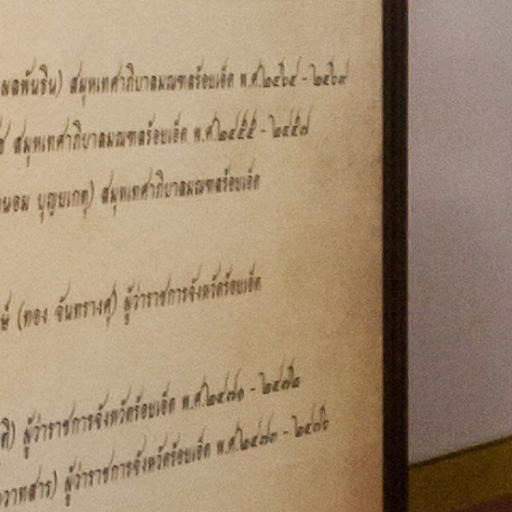 ผลพันธิน) สมุหเทศาภิบาลมณฑลร้อยเอ็ด พ.ศ.
สมุหเทศาภิบาลมณฑลร้อยเอ็ด พ.ศ.๒๔๕๕ - ๒๔๕๗
บุญยเกตุ) สมุหเทศาภิบาลมณฑลร้อยเอ็ด
(ทอง จันทรางศุ) ผู้ว่าราชการจังหวัดร้อยเอ็ด
ผู้ว่าราชการจังหวัดร้อยเอ็ด พ.ศ.๒๔๗๑ -
วาทสาร) ผู้ว่าราชการจังหวัดร้อยเอ็ด พ.ศ.๒๔๗๓ -